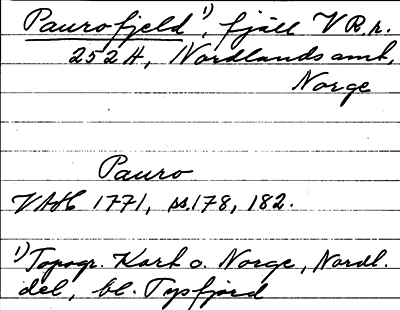 Paurofjeld ¹), fjäll V R.r.
252 A, Nordlands amt,
Norge
Pauro
VAH 1771, ss. 178, 182.
¹) Topogr. Kart o. Norge, Nordl.
del, bl. Tysfjord